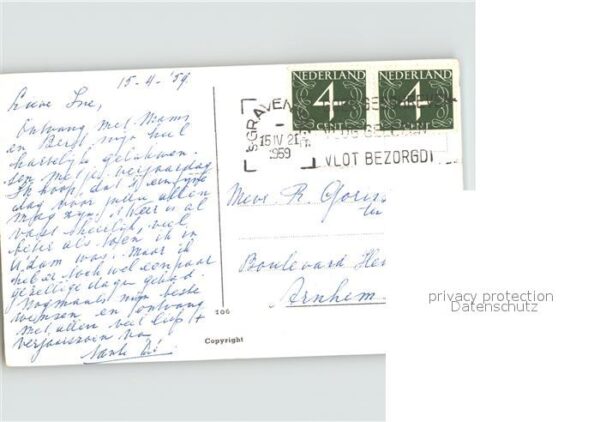 15-4-'59
Lieve Ine,
Ontvang met Mams
en Bert mijn heel
hartelijke gelukwen-
sen met je verjaardag
Ik hoop, dat 't een fijne
dag voor jullie allen
mag zijn. 't Weer is al
vast heerlijk, veel
beter als toen ik in
A'dam was. Maar ik
heb er toch wel een paar
gezellige dagen gehad.
Nogmaals mijn beste
wensen en ontvang
met allen veel liefs +
verjaarszoen van
tante
106
Copyright
NEDERLAND
4
CENT
NEDERLAND
4
CENT
'S-GRAVEN
15 IV 21
1959
VLOT BEZORGD!
Mevr. R.
Boulevard
Arnhem
privacy protection
Datenschutz